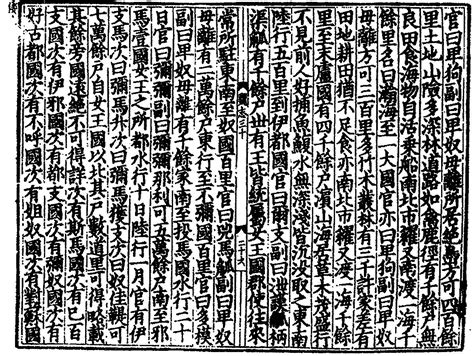 官曰卑狗副曰卑奴毋離所居絶㠀方可四百餘
里土地山險多深林道路如禽鹿徑有千餘戸無
良田食海物自活乗船南北市糴又南渡一海千
餘里名曰瀚海至一大國官亦曰卑狗副曰卑奴
毋離方可三百里多竹木叢林有三千許家差有
田地耕田猶不足食亦南北市糴又渡一海千餘
里至末盧國有四千餘戸濵山海居草木茂盛行
不見前人好捕魚鰒水無深淺皆沉没取之東南
陸行五百里到伊都國官曰爾支副曰泄謨觚柄
渠觚有千餘戸世有王皆統屬女王國郡使往來
三十
二十六
常所駐東南至奴國百里官曰兕馬觚副曰卑奴
毋離有二萬餘戸東行至不彌國百里官曰多模
副曰卑奴毋離有千餘家南至投馬國水行二十
日官曰彌彌副曰彌彌那利可五萬餘戸南至邪
馬壹國女王之所都水行十日陸行一月官有伊
支馬次曰彌馬升次曰彌馬獲支次曰奴佳鞮可
七萬餘戸自女王國以北其戸數道里可得略載
其餘旁國遠絶不可得詳次有斯馬國次有已百
支國次有伊邪國次有都支國次有彌奴國次有
好古都國次有不呼國次有姐奴國次有對蘇國
傳